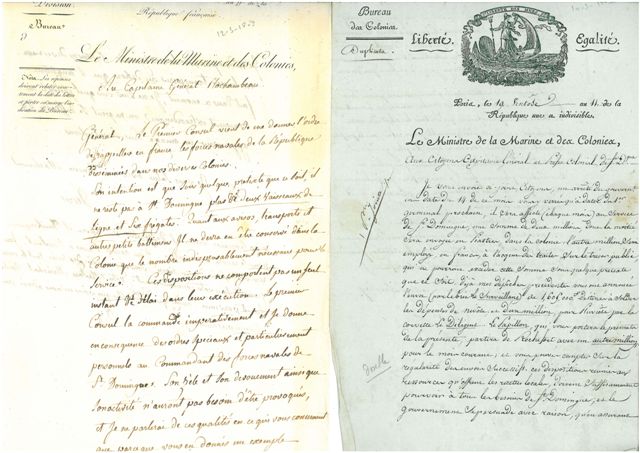 Division
République française.
Bureau
12-3-1803
Le Ministre de la Marine et des Colonies,
Au Capitaine Général Rochambeau
Nota. Les réponses
doivent relater
la date de la lettre
et porter en marge l'in-
dication du Bureau.
Général, Le Premier Consul vient de me donner l'ordre
de rappeller en france les forces navales de la République
disséminées dans nos diverses Colonies.
Son intention est que sous quelque prétexte que ce soit, il
ne reste pas à St Domingue plus de deux Vaisseaux de
Ligne et six frégates. Quant aux avisos, transports et
autres petits batimens Il ne devra en être conservé dans la
Colonie que le nombre indispensablement nécessaire pour le
Service. Ces dispositions ne comportent pas un seul
instant de délai dans leur exécution. Le premier
Consul la commande impérativement et Je donne
en conséquence des ordres spéciaux et particulièrement
personnels au Commandant des forces navales de
St Domingue. Son zèle et son dévouement ainsi que
son activité n'auront pas besoin d'être provoqués,
et Je ne parlerai de ces qualités en ce qui vous concernent
que parce que vous en donnés un exemple
Bureau
des Colonies.
Duplicata
Liberté. Egalité.
Paris, les 19 Ventôse au 11 de la
République une et indivisible.
Le Ministre de la Marine et des Colonies,
Aux Citoyens Capitaine Général et Préfet Colonial de St Dgue
Je vous envoie ci joint Citoyens, un arrêté du gouvernement
en date du 14 de ce mois. Vous verrez qu'à dater du 1er
germinal prochain, il sera affecté chaque mois au Service
de St Domingue, une somme de deux millions dont la moitié
sera envoyée en Piastres dans la colonie l'autre million sera
employé en france à l'acquit des traites sur le trésor public
qui ne pourront excéder cette somme sous quelque prétexte
que ce soit. Déjà mes dépêches précédentes vous ont annoncé
les dépenses de nivôse, et d'un million, pour Pluviôse par la
corvette la Diligente. Le Papillon, qui vous portera le primata
de la présente, partira de Rochefort avec un autre million
pour le mois courant, et vous pouvez compter sur la
régularité des envois successifs. Ces dispositions réunies aux
ressources qu'offrent les recettes locales, doivent suffisamment
pourvoir à tous les besoins de St Domingue, et le
gouvernement se persuade avec raison, qu'en assurant
double